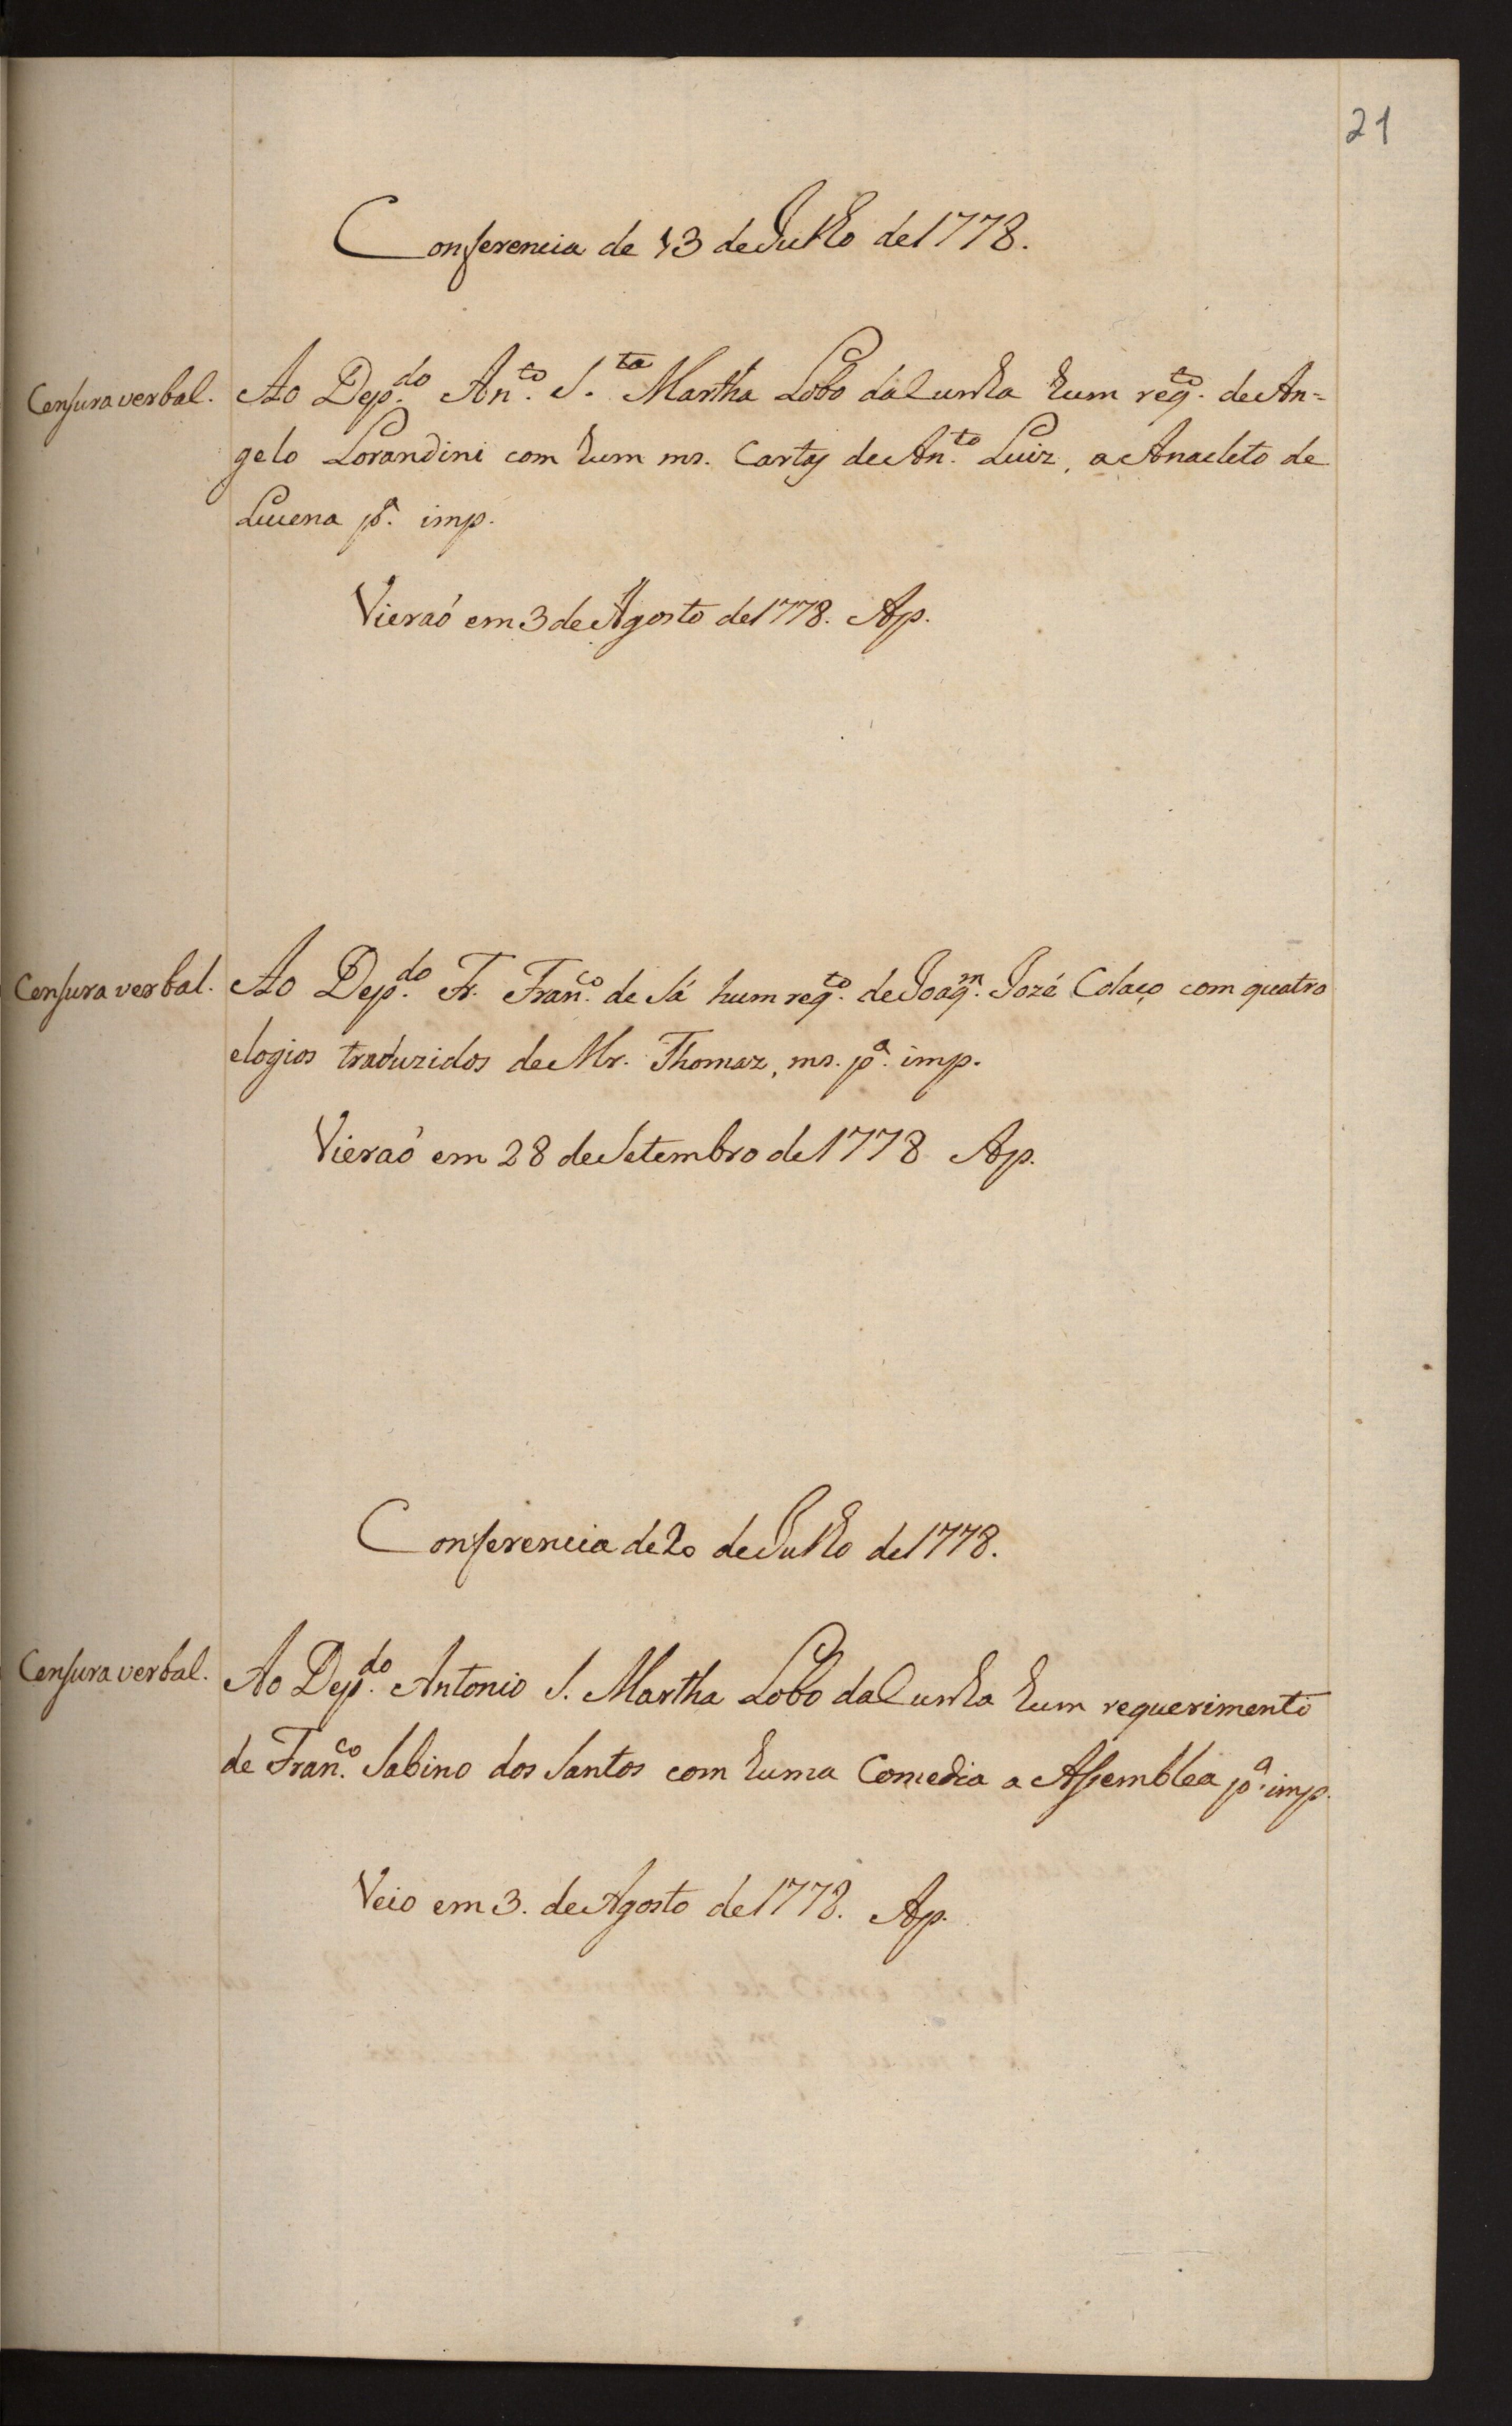 21
Conferencia de 13 de Julho de 1778.
Censura verbal. Ao Dep.do An.to S.ta Martha Lobo da Cunha hum req.to de An=
gelo Lorandini com hum ms. Cartas de An.to Luiz, a Anacleto de
Lucena p.a imp.
Vieraõ em 3 de Agosto de 1778. Ap.
Censura verbal. Ao Dep.do Fr. Fran.co de Sá hum req.to de Joaq.m Jozé Colaço com quatro
elogios traduzidos de Mr. Thomaz, ms. p.a imp.
Vieraõ em 28 de Setembro de 1778 Ap.
Conferencia de 20 de Julho de 1778.
Censura verbal. Ao Dep.do Antonio S. Martha Lobo da Cunha hum requerimento
de Fran.co Sabino dos Santos com huma Comedia a Assemblea p.a imp.
Veio em 3. de Agosto de 1778. Ap.